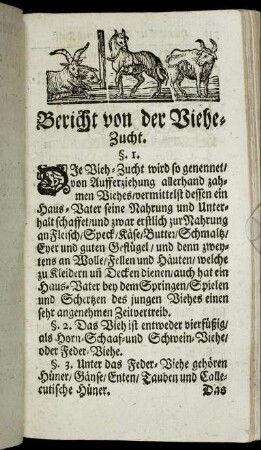 Bericht von der Viehe-
Zucht.
§. 1.
DJe Vieh-Zucht wird so genennet/
von Aufferziehung allerhand zah-
men Viehes/vermittelst dessen ein
Haus-Vater seine Nahrung und Unter-
halt schaffet/und zwar erstlich zur Nahrung
an Fleisch/Speck/Käse/Butter/Schmaltz/
Eyer und guten Geflügel/ und denn zwey-
tens an Wolle/Fellen und Häuten/ welche
zu Kleidern uñ Decken dienen/auch hat ein
Haus-Vater bey dem Springen/Spielen
und Schertzen des jungen Viehes einen
sehr angenehmen Zeitvertreib.
§. 2. Das Vieh ist entweder vierfüßig/
als Horn-Schaaf-und Schwein-Viehe/
oder Feder-Viehe.
§. 3. Unter das Feder-Viehe gehören
Hüner/ Gänse/ Enten/ Tauben und Calle-
cutische Hüner.
Das